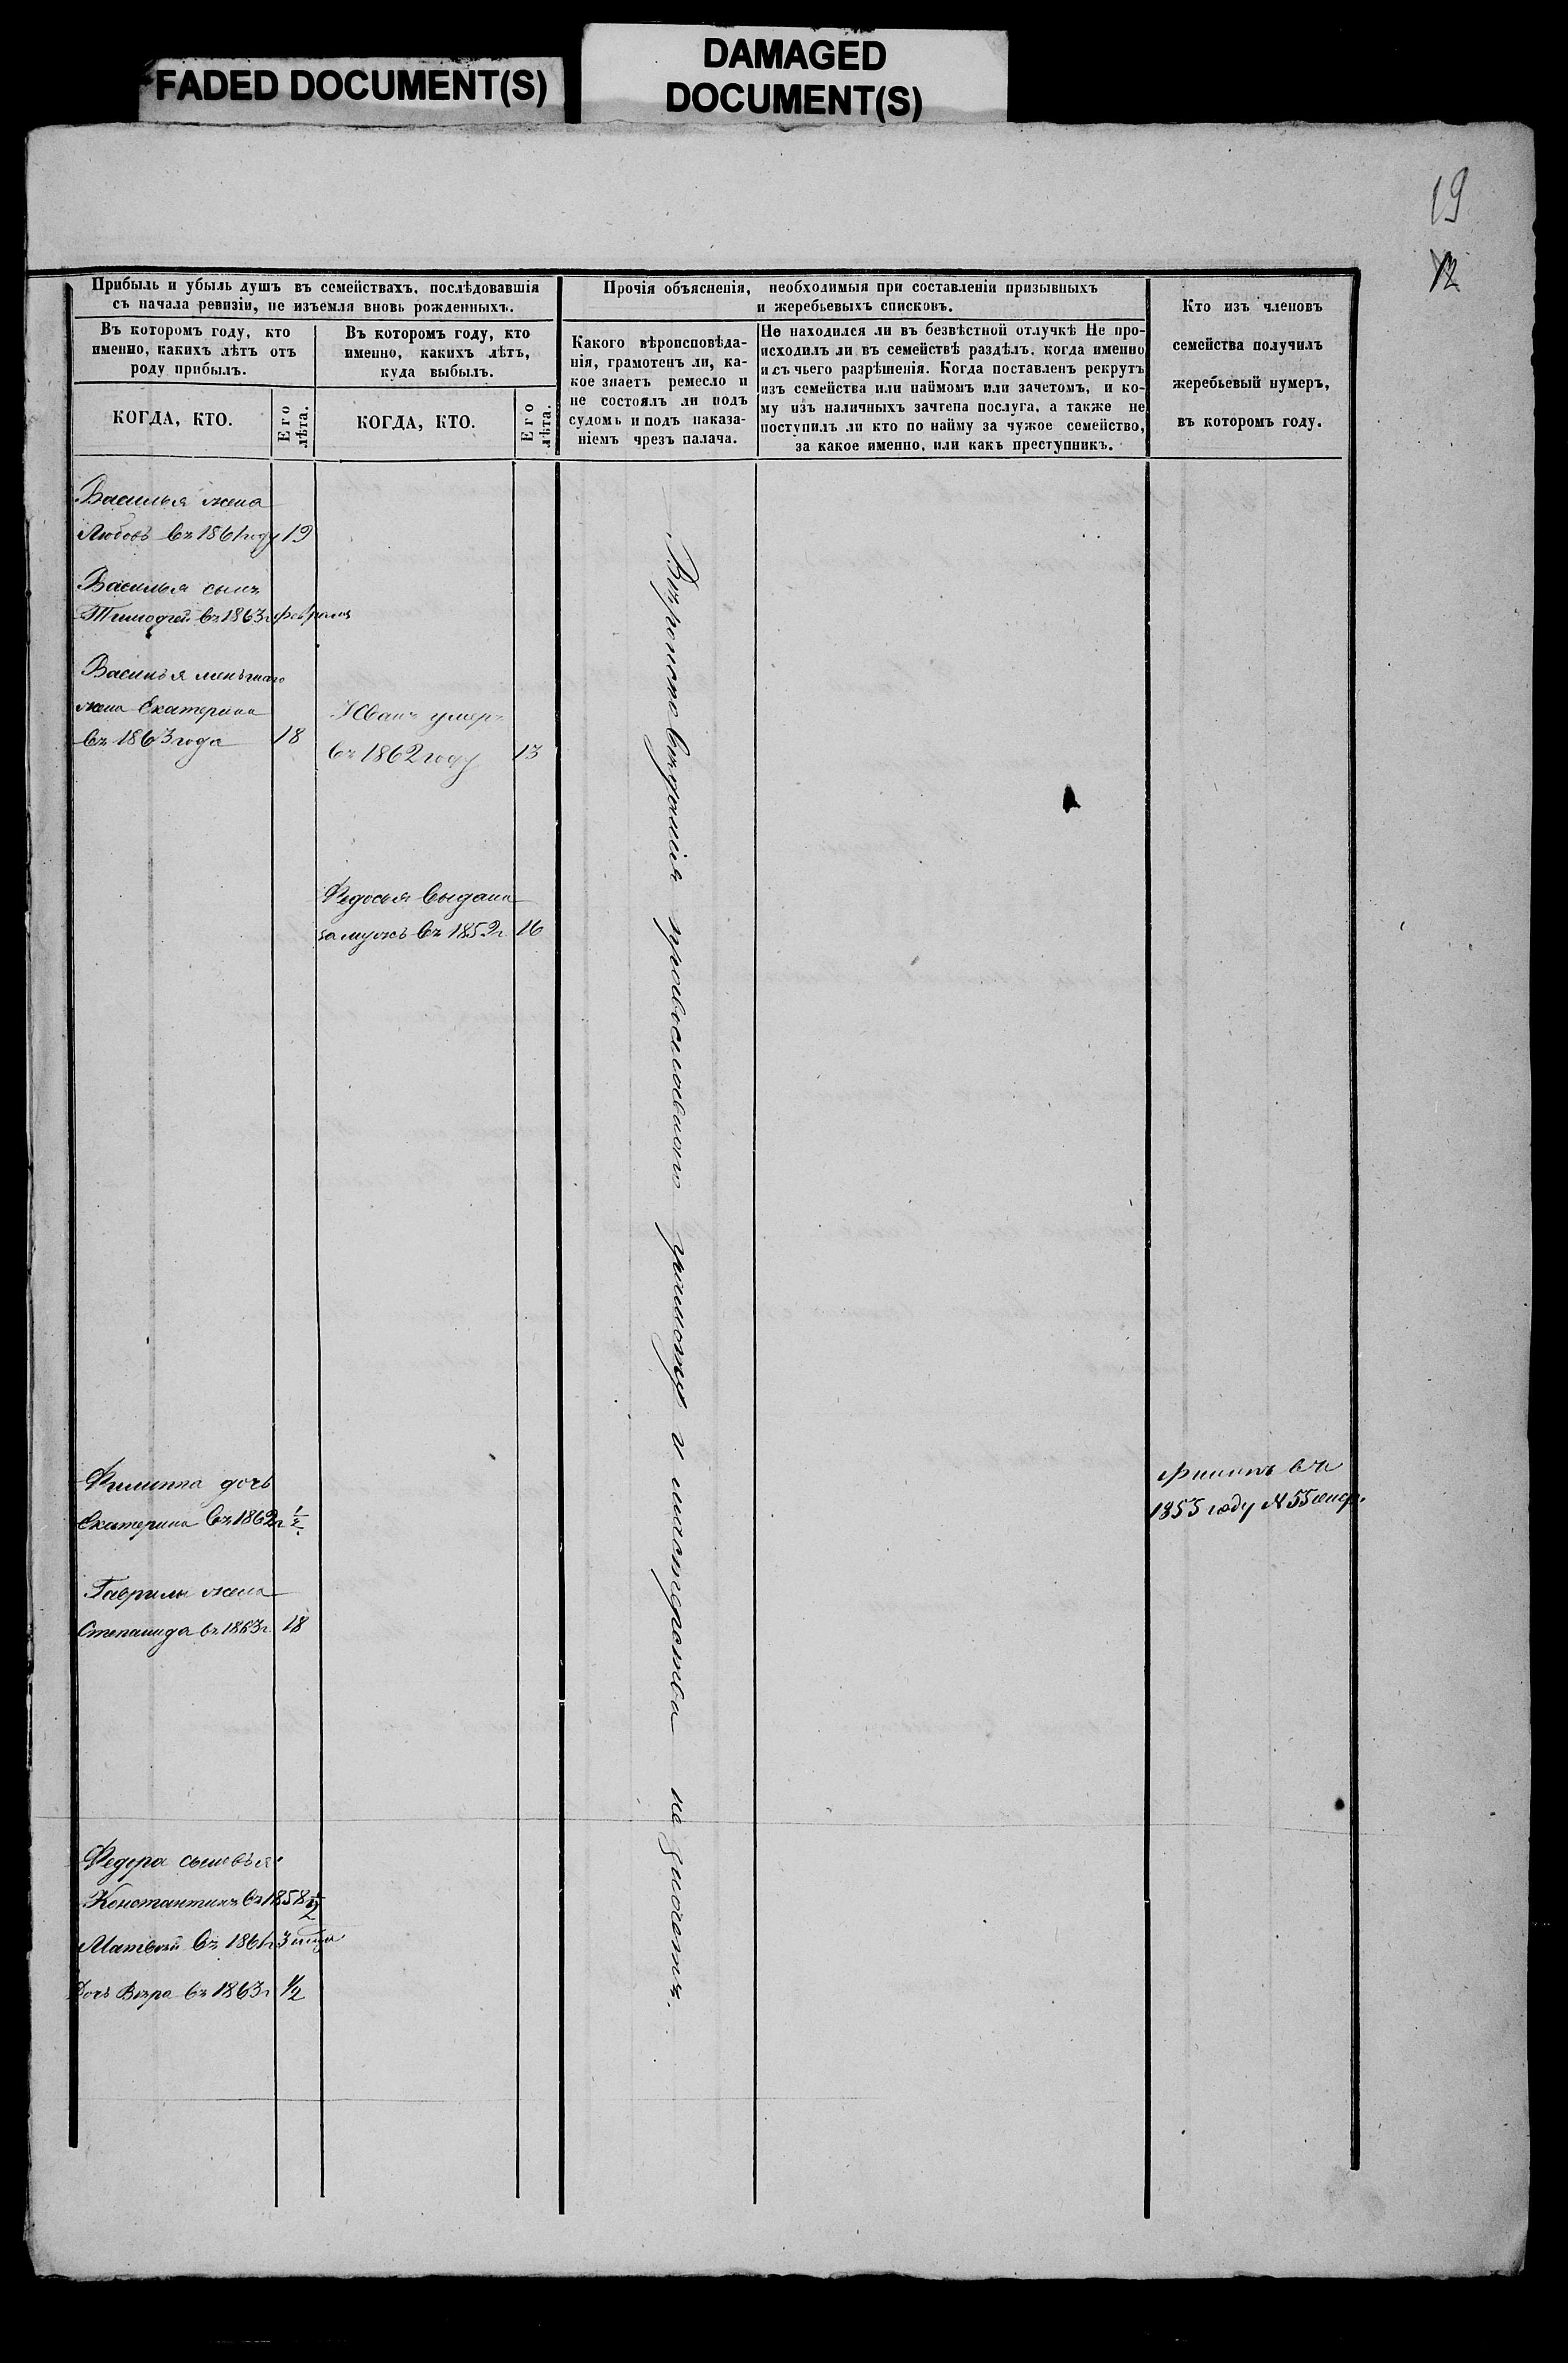 FADED DOCUMENT(S)
DAMAGED
DOCUMENT(S)
19
12
Прибыль и убыль душъ въ семействахъ, послѣдовавшія
съ начала ревизіи, не изъемля вновь рожденныхъ.
Въ которомъ году, кто
именно, какихъ лѣтъ отъ
роду прибылъ.
КОГДА, КТО.
Его
лѣта.
Въ которомъ году, кто
именно, какихъ лѣтъ,
куда выбылъ.
КОГДА, КТО.
Его
лѣта.
Прочія объясненія, необходимыя при составленіи призывныхъ
и жеребьевыхъ списковъ.
Какого вѣроисповѣда-
нія, грамотенъ ли, ка-
кое знаетъ ремесло и
не состоялъ ли подъ
судомъ и подъ наказа-
ніемъ чрезъ палача.
Не находился ли въ безвѣстной отлучкѣ Не про-
исходилъ ли въ семействѣ раздѣлъ, когда именно
и съ чьего разрѣшенія. Когда поставленъ рекрутъ
изъ семейства или наймомъ или зачетомъ, и ко-
му изъ наличныхъ зачтена послуга, а также не
поступилъ ли кто по найму за чужое семейство,
за какое именно, или какъ преступникъ.
Кто изъ членовъ
семейства получилъ
жеребьевый нумеръ,
въ которомъ году.
Василья жена
Любовь въ 1861 году 19
Василья сынъ
Тимофей въ 1863 г февраля
Василья меньшаго
жена Екатерина
въ 1863 года 18
Иванъ умеръ
въ 1862 году 13
Федосья выдана
замужъ въ 1852 г. 16
Вѣроисповѣданія православнаго грамоты и мастерства не знаютъ.
Филиппа дочь
Екатерина въ 1862 г ½
Филипъ въ
1855 году № 55
Гаврилы жена
Степанида въ 1863 г. 18
Федора сыновья
Константинъ въ 1858 ½
Матвей въ 1861 г 3
Дочь Вѣра въ 1863 г ½